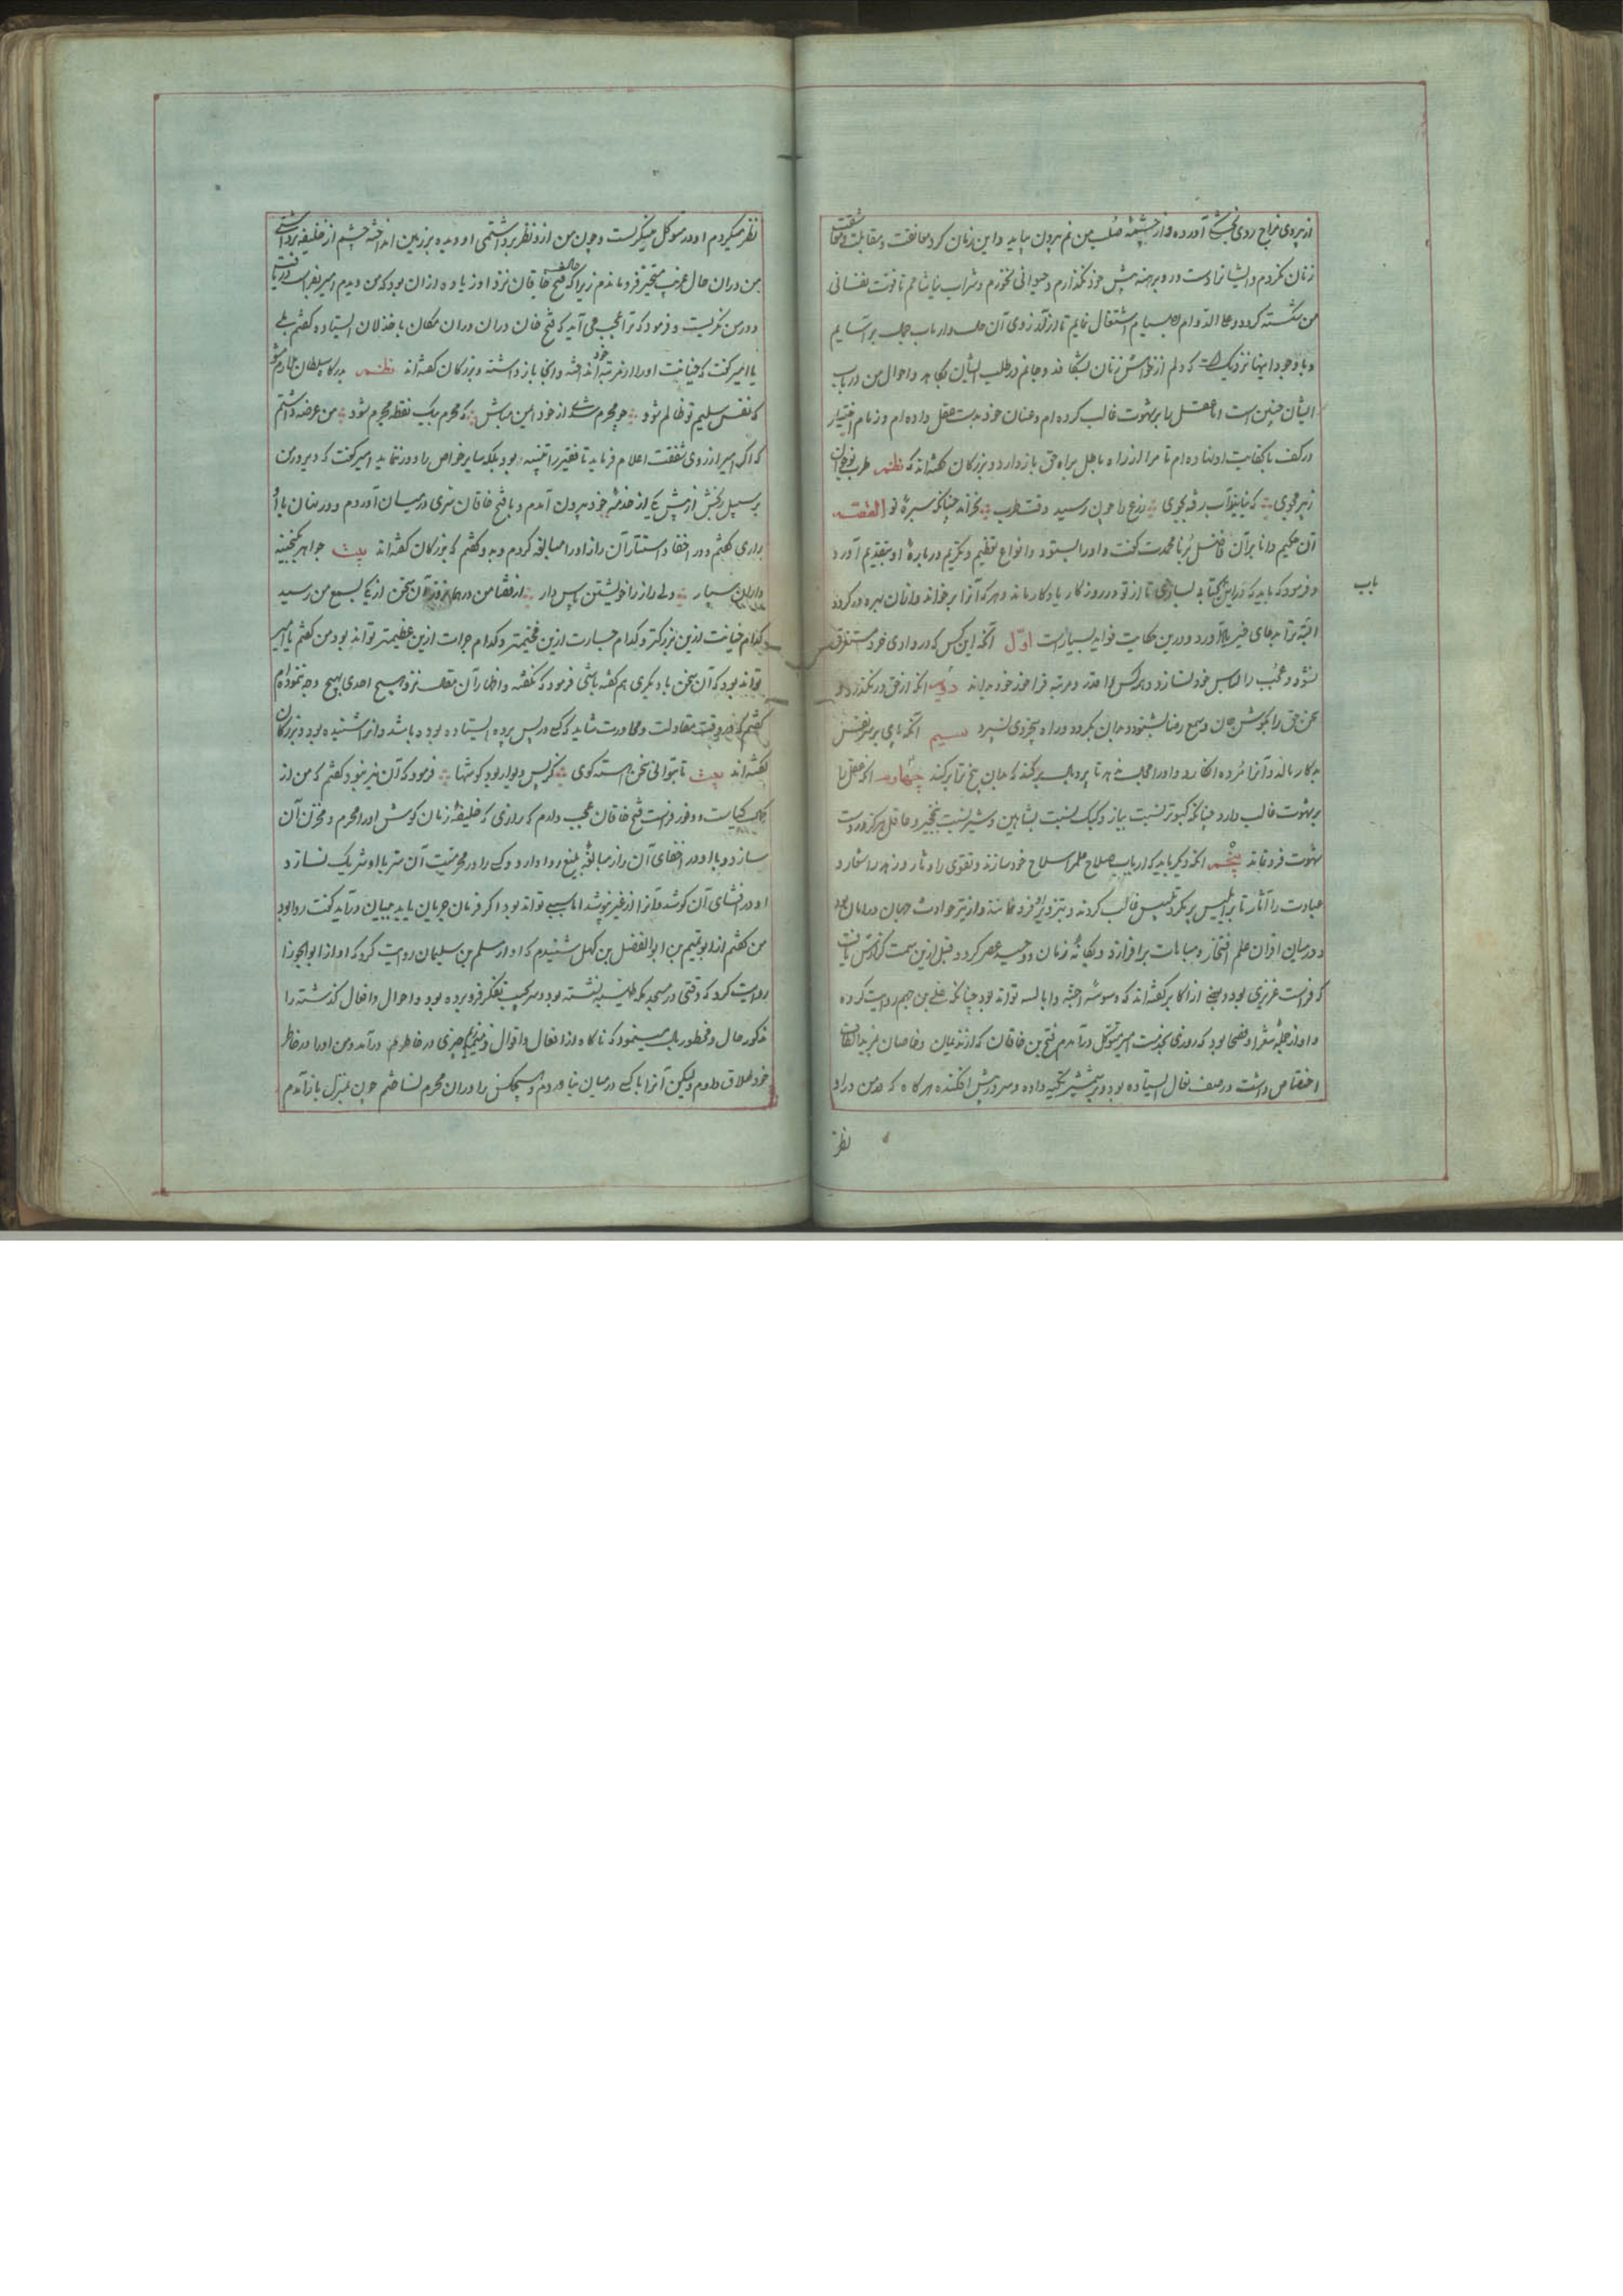 از پرودی مزاج روی بخشکی آورده و از چشمهٔ صلب من نم بیرون نیاید و این زنان کرد معانقت و مقابلت و شفقت
زنان نکردم و ایشانرا دست و رو برهنه پیش خود نگذارم و حیوانی نخورم و شراب نیاشامم تا قوت نفسانی
من شکسته کردد و علی الدوام بصیام اشتغال نمایم تا از آرزوی آن
و با وجود اینها نزدیک است که دلم از خواهش زنان بشکافد و جانم در طلب ایشان بکاهد و احوال من در باب
ایشان چنین است اما عقل را بر شهوت غالب کرده ام و عنان خود بدست عقل داده ام و زمام اختیار
در کف با کفایت او نهاده ام تا مرا از راه باطل براه حق باز دارد و بزرکان کفته اند که نظم طرب نوجوان
ز پیر مجوی که نیاید آب رفته بجوی زرع را چون رسید وقت طرب نخرامد چنانکه سبزهٔ نو القصه
آن حکیم دانا بر آن فاضل برنا محمدت کفت و او را بستود و انواع تعظیم و تکریم در بارهٔ او بتقدیم آورد
و فرمود که باید که در این کتابی بسازی تا از تو در روزکار یادکار ماند و هر که آنرا بر خواند و از آن بهره ور کردد
البته ترا بدعای خیر یاد آورد و درین حکایت فواید بسیارست اول آنکه این کس که در وادی خود مستغرق
نشود و عجب را لباس خود نسازد و هر کس را قدر و مرتبه فراخور خود بداند دویم آنکه از حق در نگذرد و
سخن حق را بکوش جان و سمع رضا بشنود و بدان بگرود و راه بیخردی نسپرد سیم آنکه پای بر سر نفس
بدکار مالد و آنرا مرده انکارد چهارم آنکه عقل را
بر شهوت غالب دارد چنانکه کبوتر نسبت بباز و کبک نسبت بشاهین و شیر نسبت بنخجیر و عاقل هرکز در دست
شهوت فرو نماند پنجم آنکه دیگر باید که ارباب صلاح علم را سلاح خود سازند و تقوی را دثار و زهد را شعار و
عبادت را آثار تا بر ابلیس پر مکر و تلبیس غالب کردند و بتزویر او فرو نمانند و از تیر حوادث جهان در امان بود
و در میان اقران علم افتخار و مباهات بر افرازد و یکانهٔ زمان و وحید عصر کردد و قبل ازین سمت کذارش یافت
که فراست غریزی بود و بعضی از اکابر کفته اند که وسوسهٔ اجنه و ابالسه تواند بود چنانکه علی بن جهم روایت کرده
و او از جملهٔ شعرا و فصحا بود که روزی بخدمت امیر متوکل درآمدم فتح بن خاقان که از ندیمان و خاصان بمزید التفات
اختصاص داشت در صف نعال ایستاده بود و بر شمشیر تکیه داده و سر در پیش افکنده هر کاه که من در او
نظر
باب
نظر میکردم او در متوکل مینکریست و چون من ازو نظر برداشتمی او دیده بر زمین انداخته چشم از خلیفه برداشتی
من در آن حال غریب متحیر فرو ماندم زیرا که حالت فتح خاقان نزد او زیاده از آن بود که من دیدم امیر بفراست دریافت
و در من نکریست و فرمود که ترا عجب می آید که فتح خان در آن مکان با خذلان ایستاده کفتم بلی
یا امیر کفت که خیانت او را از مرتبهٔ خود انداخته و اینجا باز داشته و بزرکان کفته اند نظم بدرکاه سلطان
که نفس سلیم تو ظالم شود چو مجرم شدی از خود ایمن مباش که محرم بیک نقطه مجرم شود من عرضه داشتم
که اکر امیر از روی شفقت اعلام فرماید تا فقیر را تنبیه بود بلکه سایر خواص را دور ننماید امیر کفت که دیروز من
بر سبیل رنجش از پیش یکی از خدمهٔ خود بیرون آمدم و با فتح خاقان سری در میان آوردم و در نهان با او
رازی کفتم و در اخفا و استتار آن راز او را مبالغه کردم و بدو کفتم که بزرکان کفته اند بیت جواهر بکنجینه
داران سپار ولی راز را خویشتن پاس دار از قضا من در همان روز آن سخن از یکی بسمع من رسید
کدام خیانت ازین بزرکتر و کدام جسارت ازین فخیمتر و کدام جرات ازین عظیمتر تواند بود من کفتم یا امیر
تواند بود که آن سخن با دیکری هم کفته باشی فرمود که نکفته و اظهار آن مقاله نزد هیچ احدی بهیچ وجه ننموده ام
کفتم که در وقت مقاولت و محاورت شاید که کسی در پس پرده ایستاده بوده باشد و آنرا شنیده بود و بزرکان
کفته اند بیت تا توانی سخن آهسته کوی کز پس دیوار بود کوشها فرمود که آن نیز نبود کفتم که من از
کمال کیاست و وفور فراست فتح خاقان عجب دارم که رازی که خلیفهٔ زمان کوش او را محرم و مخزن آن
سازد و با او در اخفای آن راز مبالغهٔ بلیغ روا دارد و کسی را در محرمیت آن سر با او شریک نسازد
او در افشای آن کوشد و آنرا از غیر نپوشد اما سببی تواند بود اکر فرمان جریان یابد ببیان درآید کفت روا بود
من کفتم از ابو تمیم بن ابو الفضل بن کهل شنیدم که او از سلم بن سلیمان روایت کرد که او از ابو الجوزا
روایت کرد که وقتی در مسجد مکه طیبه نشسته بود و سر بجیب تفکر فرو برده بود و احوال و افعال کذشته را
مذکور حال و مخطور بال مینمود که ناکاه از افعال و اقوال چیزی در خاطرم درآمد و من او را در خاطر
خود طلاق دادم ولیکن آنرا با کسی درمیان نیاوردم و هیچکس را در آن محرم نساختم چون بمنزل باز آمدم